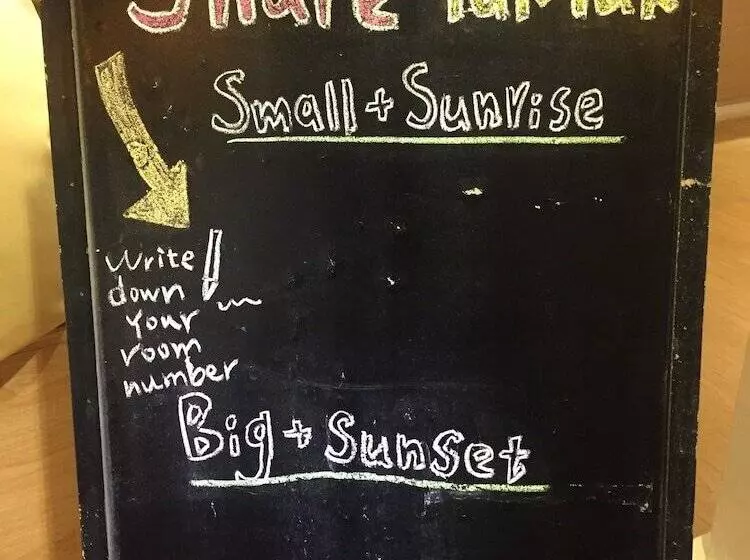 Share
Small + Sunrise
Write
down
your
room
number
Big + Sunset